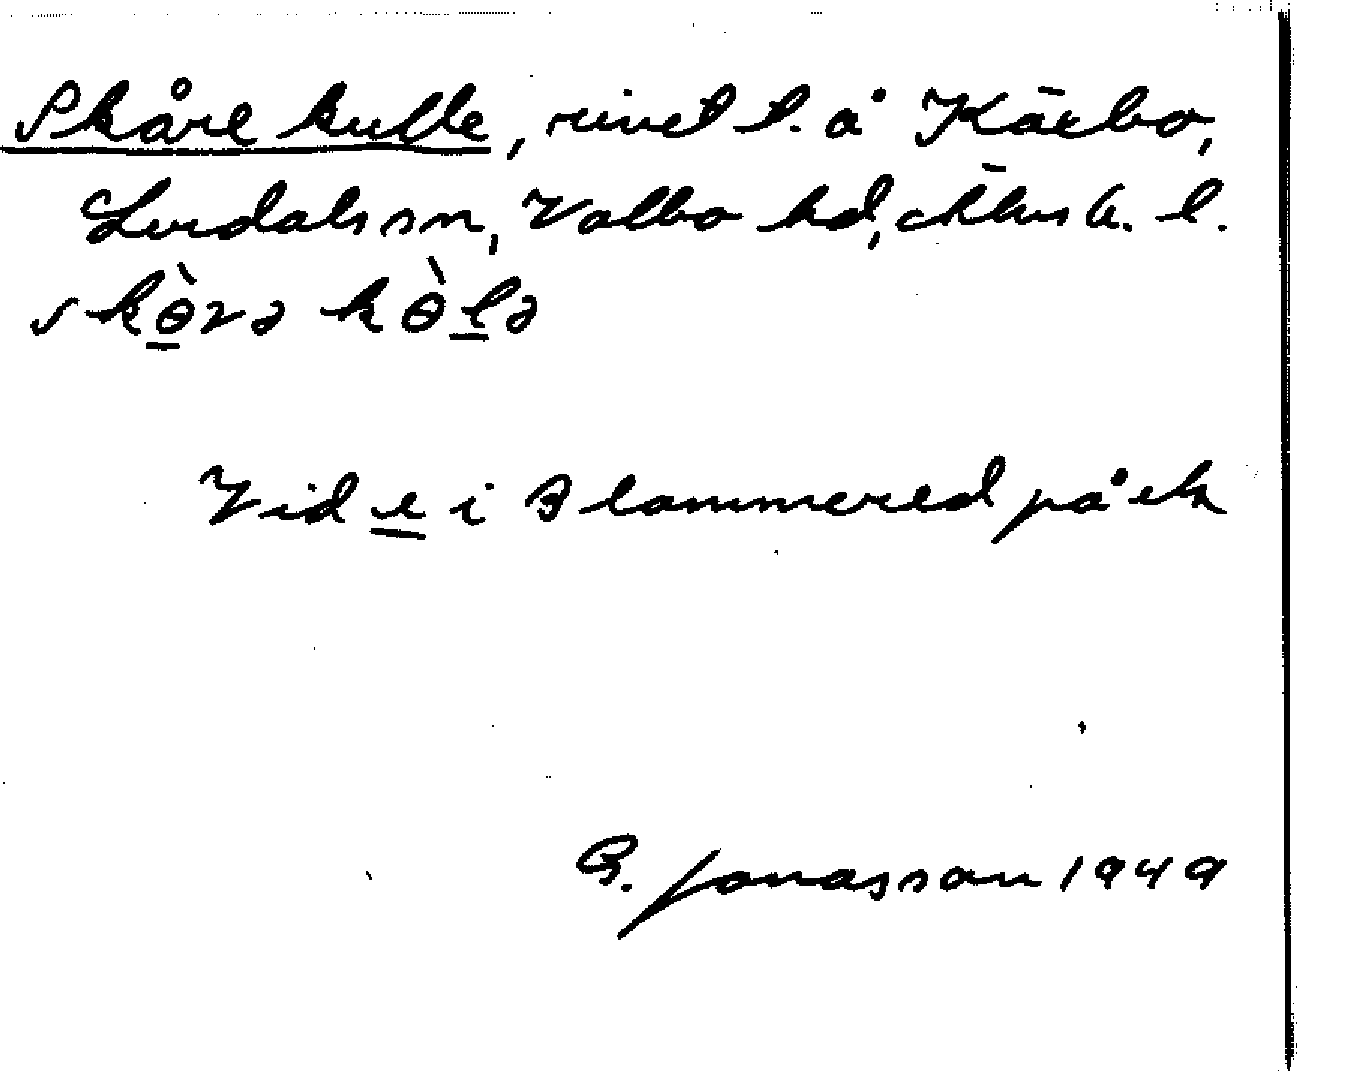 Skåre kulle, rivet t. å Kärbo,
Lerdals sn, Valbo hd, Älvsb. l.
skɵ̀rə kɵ̀lə
Vid e i Blommered på ek
G. Jonasson 1949